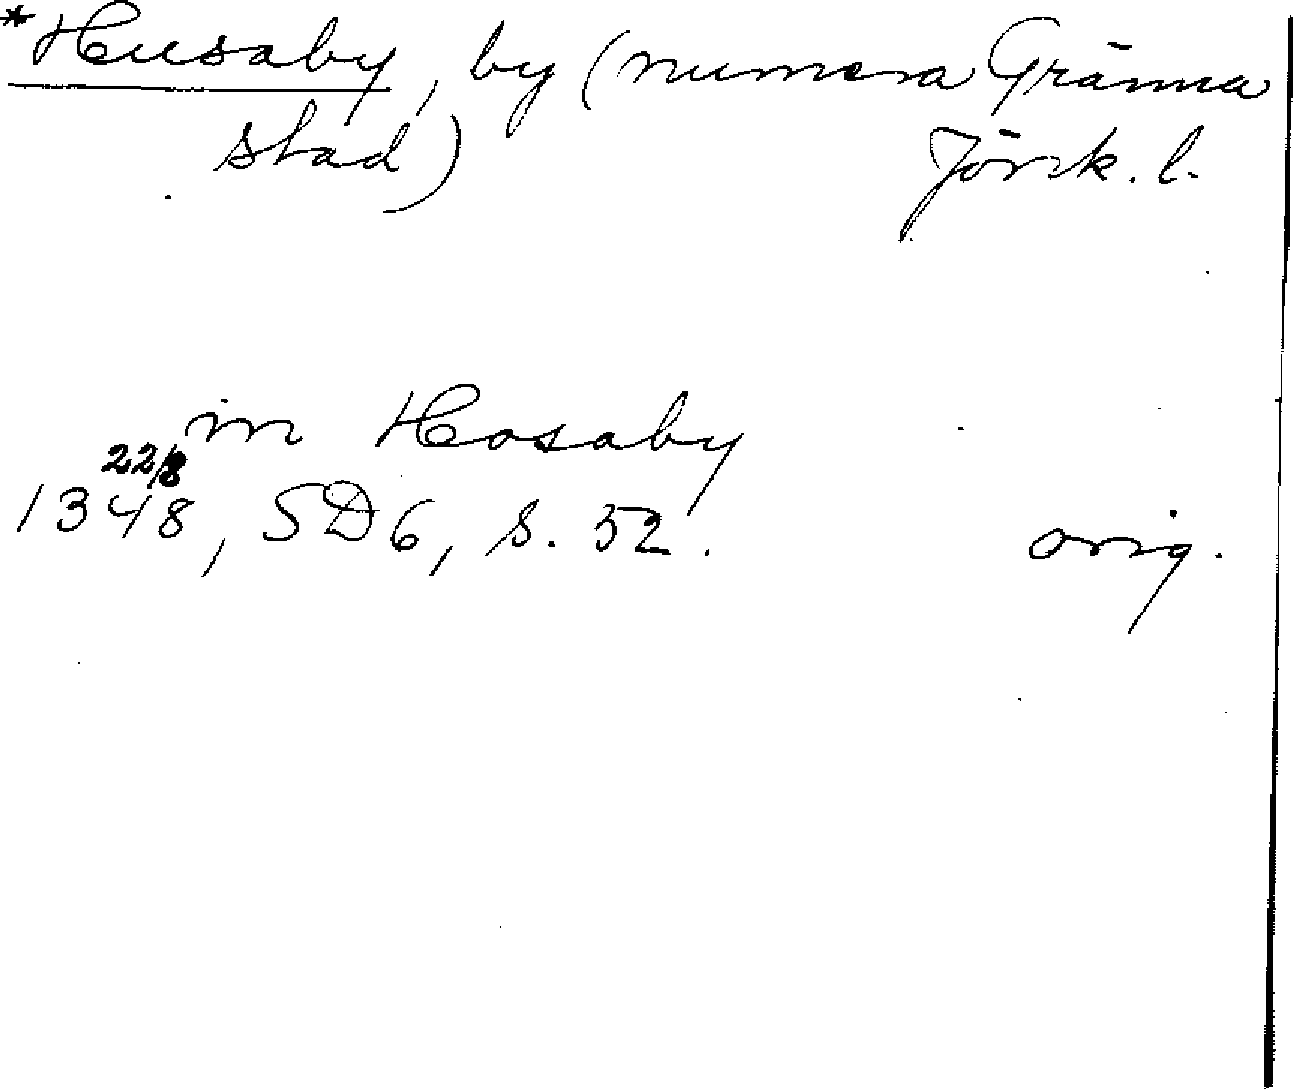 *Husaby, by (numera Gränna
stad) Jönk. l.
in Hosaby
22/8
1348, SD 6, s. 52. orig.